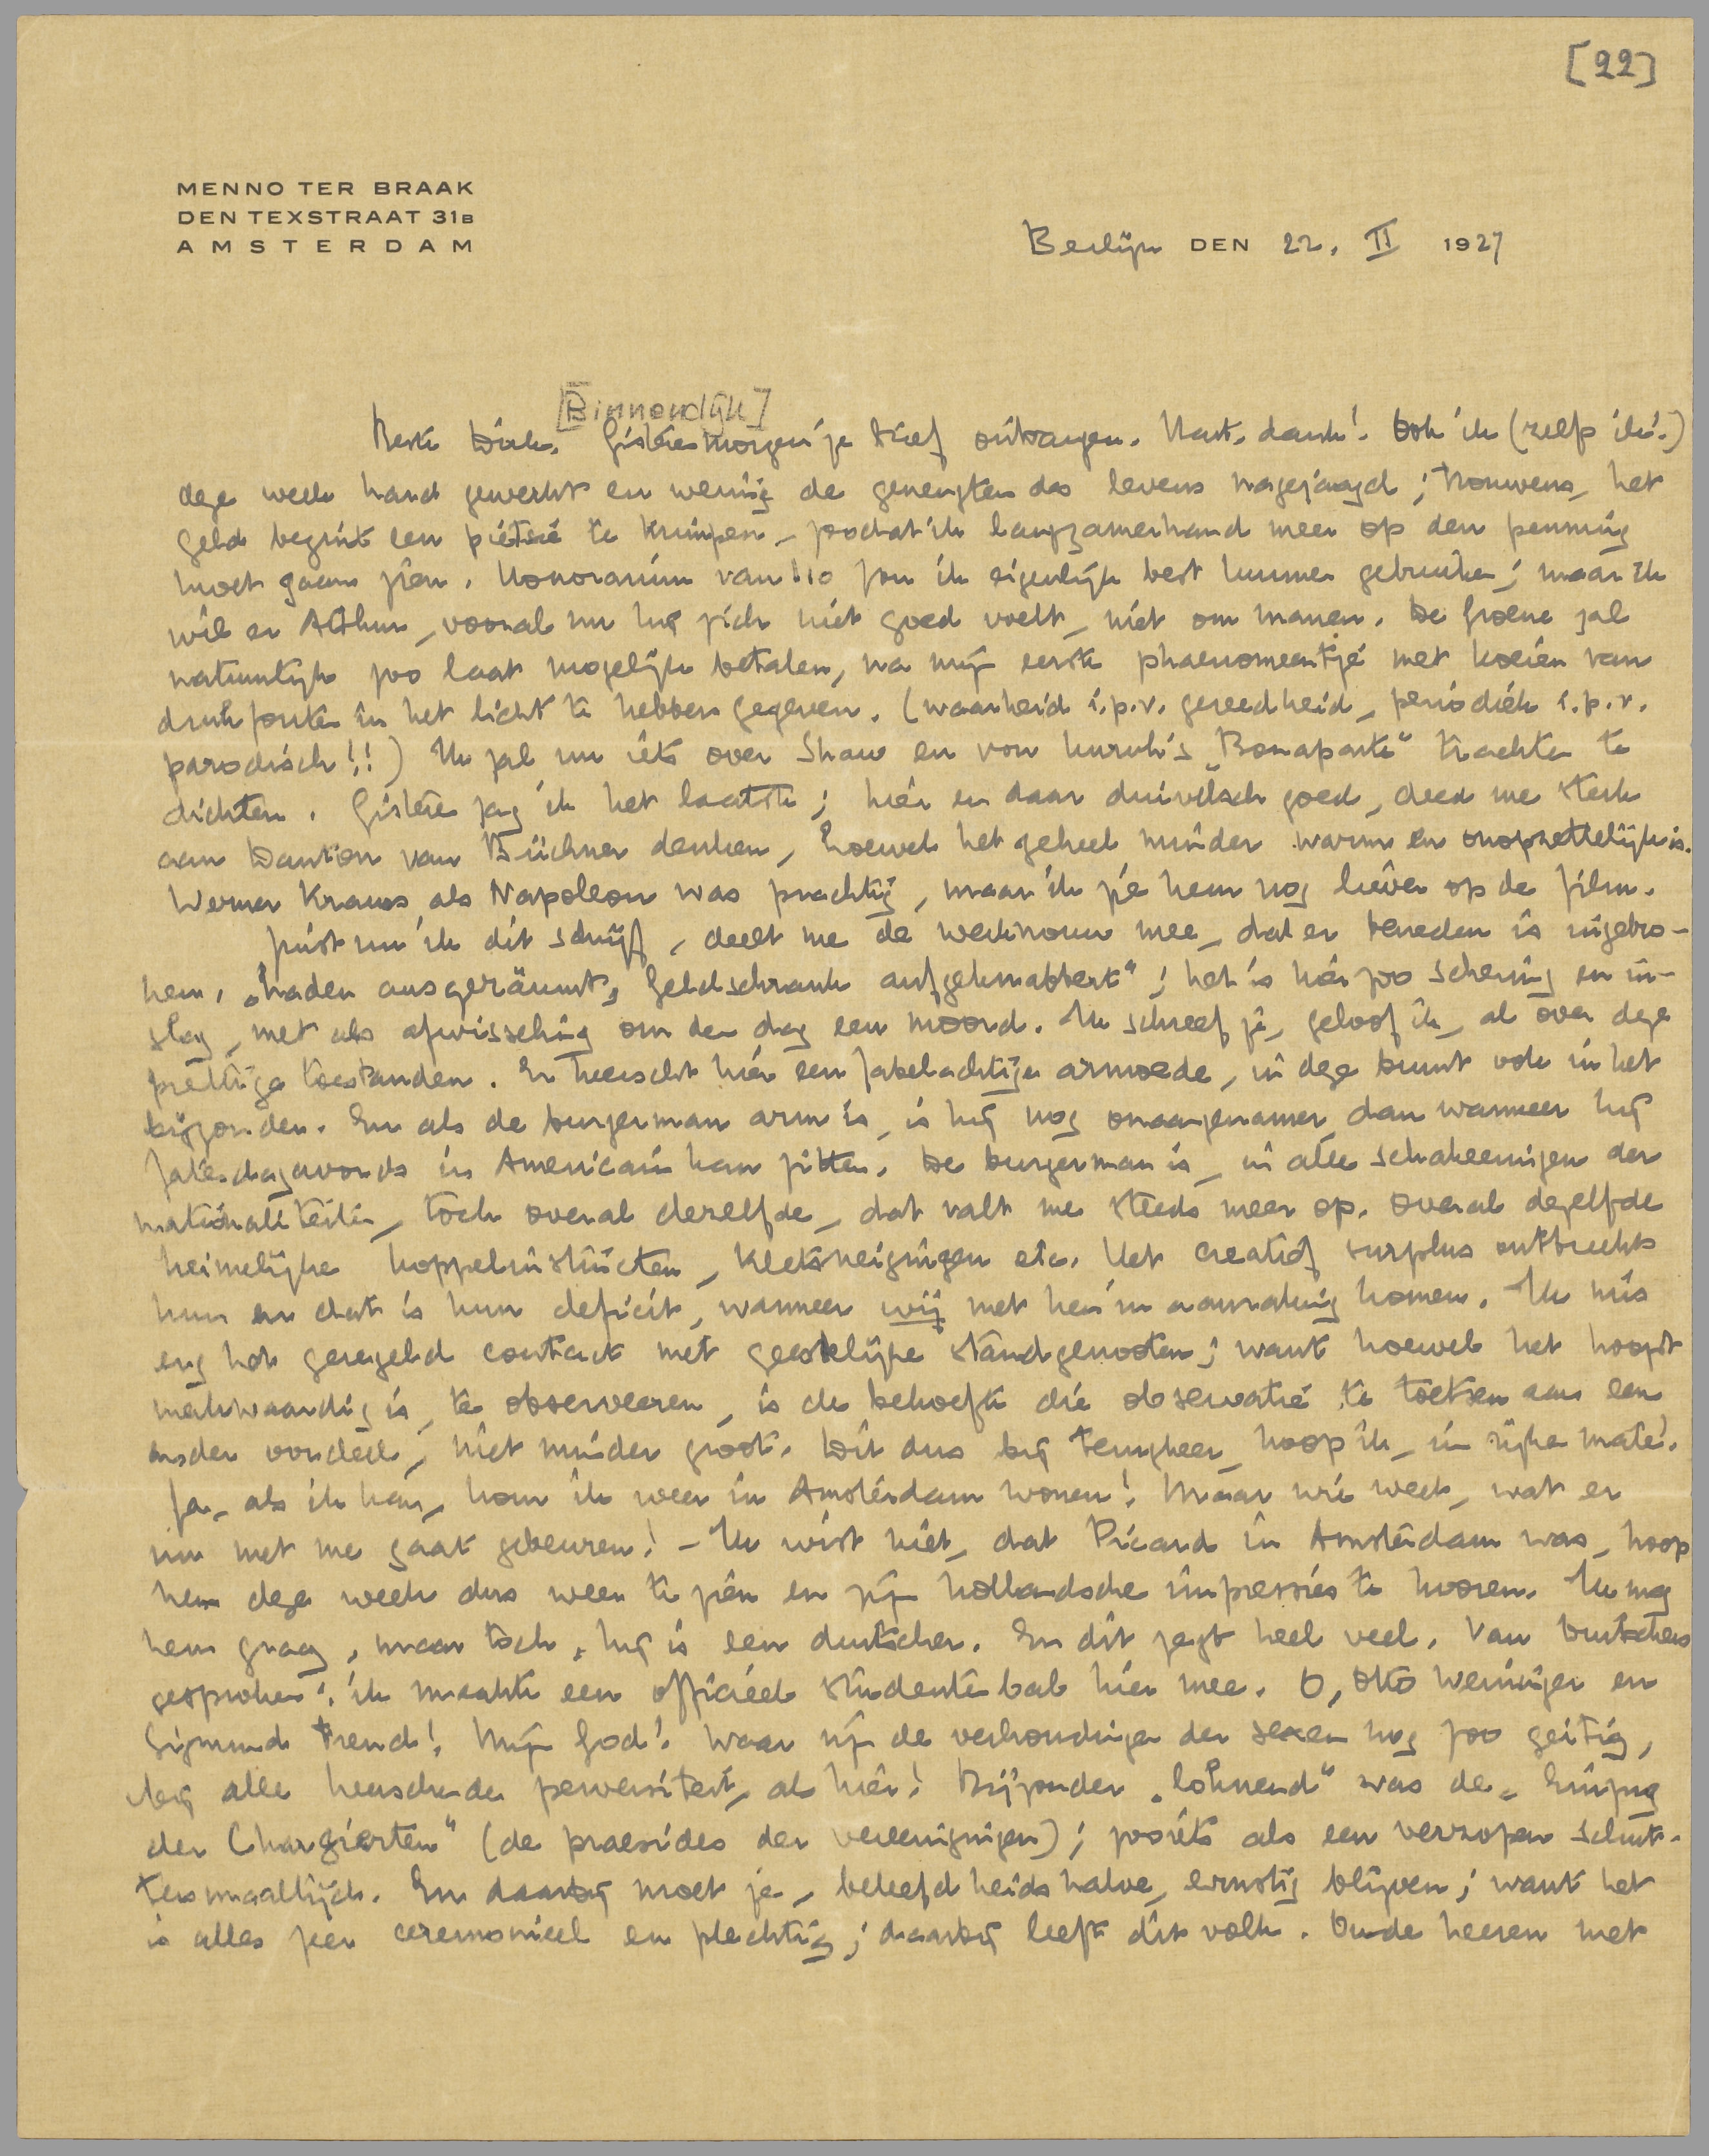 [22]
MENNO TER BRAAK
DEN TEXSTRAAT 31B
AMSTERDAM
Berlijn DEN 22. II 1927
[Binnendijk]
Beste Dick. Gisterenmorgen je brief ontvangen. Hart. dank! Ook ik (zelfs ik!)
deze week hard gewerkt en weinig de geneugten des levens nagejaagd; trouwens, het
geld begint een piétsie te krimpen, zoodat ik langzamerhand meer op den penning
moet gaan zien. Honorarium van i 10 zou ik eigenlijk best kunnen gebruiken; maar ik
wil er Arthur, vooral nu hij zich niet goed voelt, niet om manen. De Groene zal
natuurlijk zoo laat mogelijk betalen, na mijn eerste phaenomeentje met koeien van
drukfouten in het licht te hebben gegeven. (waarheid i.p.v. gereedheid, periodiek i.p.v.
parodisch!!) Ik zal nu iets over Shaw en von Unruh's „Bonaparte" trachten te
dichten. Gisteren zag ik het laatste; hier en daar duivelsch goed, deed me sterk
aan Danton van Büchner denken, hoewel het geheel minder warm en onopzettelijk is.
Werner Krauss als Napoleon was prachtig, maar ik zie hem nog liever op de film.
Juist nu ik dit schrijf, deelt me de werkvrouw mee, dat er beneden is ingebro-
ken. „Laden ausgeräumt, Geldschrank aufgeknabbert"; het is hier zoo schering en in-
slag, met als afwisseling om den dag een moord. Ik schreef je, geloof ik, al over deze
prettige toestanden. Er heerscht hier een fabelachtige armoede, in deze buurt ook in het
bijzonder. En als de burgerman arm is, is hij nog onaangenamer dan wanneer hij
Zaterdagavonds in Americain kan zitten. De burgerman is, in alle schakeeringen der
nationaliteiten, toch overal dezelfde, dat valt me steeds meer op. Overal dezelfde
heimelijke koppelinstincten, kletsneigingen etc. Het creatief surplus ontbreekt
hun en dat is hun deficit, wanneer wij met hen in aanraking komen. Ik mis
erg het geregeld contact met geestelijke standgenooten; want hoewel het hoogst
merkwaardig is, te observeeren, is de behoefte die observatie te toetsen aan een
ander oordeel, niet minder groot. Dit dus bij terugkeer, hoop ik, in rijke mate!
Ja, als ik kan, kom ik weer in Amsterdam wonen! Maar wie weet, wat er
nu met me gaat gebeuren! - Ik wist niet, dat Picard in Amsterdam was, hoop
hem deze week dus weer te zien en zijn hollandsche impressies te hooren. Ik mag
hem graag, maar toch, hij is een duitscher. En dit zegt heel veel. Van Duitschers
gesproken! ik maakte een officieel studentenbal hier mee. O, Otto Weininger en
Sigmund Freud! Mijn God! Waar zijn de verhoudingen der sexen nog zoo geitig,
bij alle heerschende perversiteit, als hier! Bijzonder „lohnend" was de „Einzug
der Chargierten" (de praesides der vereenigingen); zooiets als een verzopen schut-
tersmaaltijd. En daarbij moet je, beleefdheidshalve, ernstig blijven; want het
is alles zeer ceremonieel en plechtig; daarbij leeft dit volk. Oude heeren met